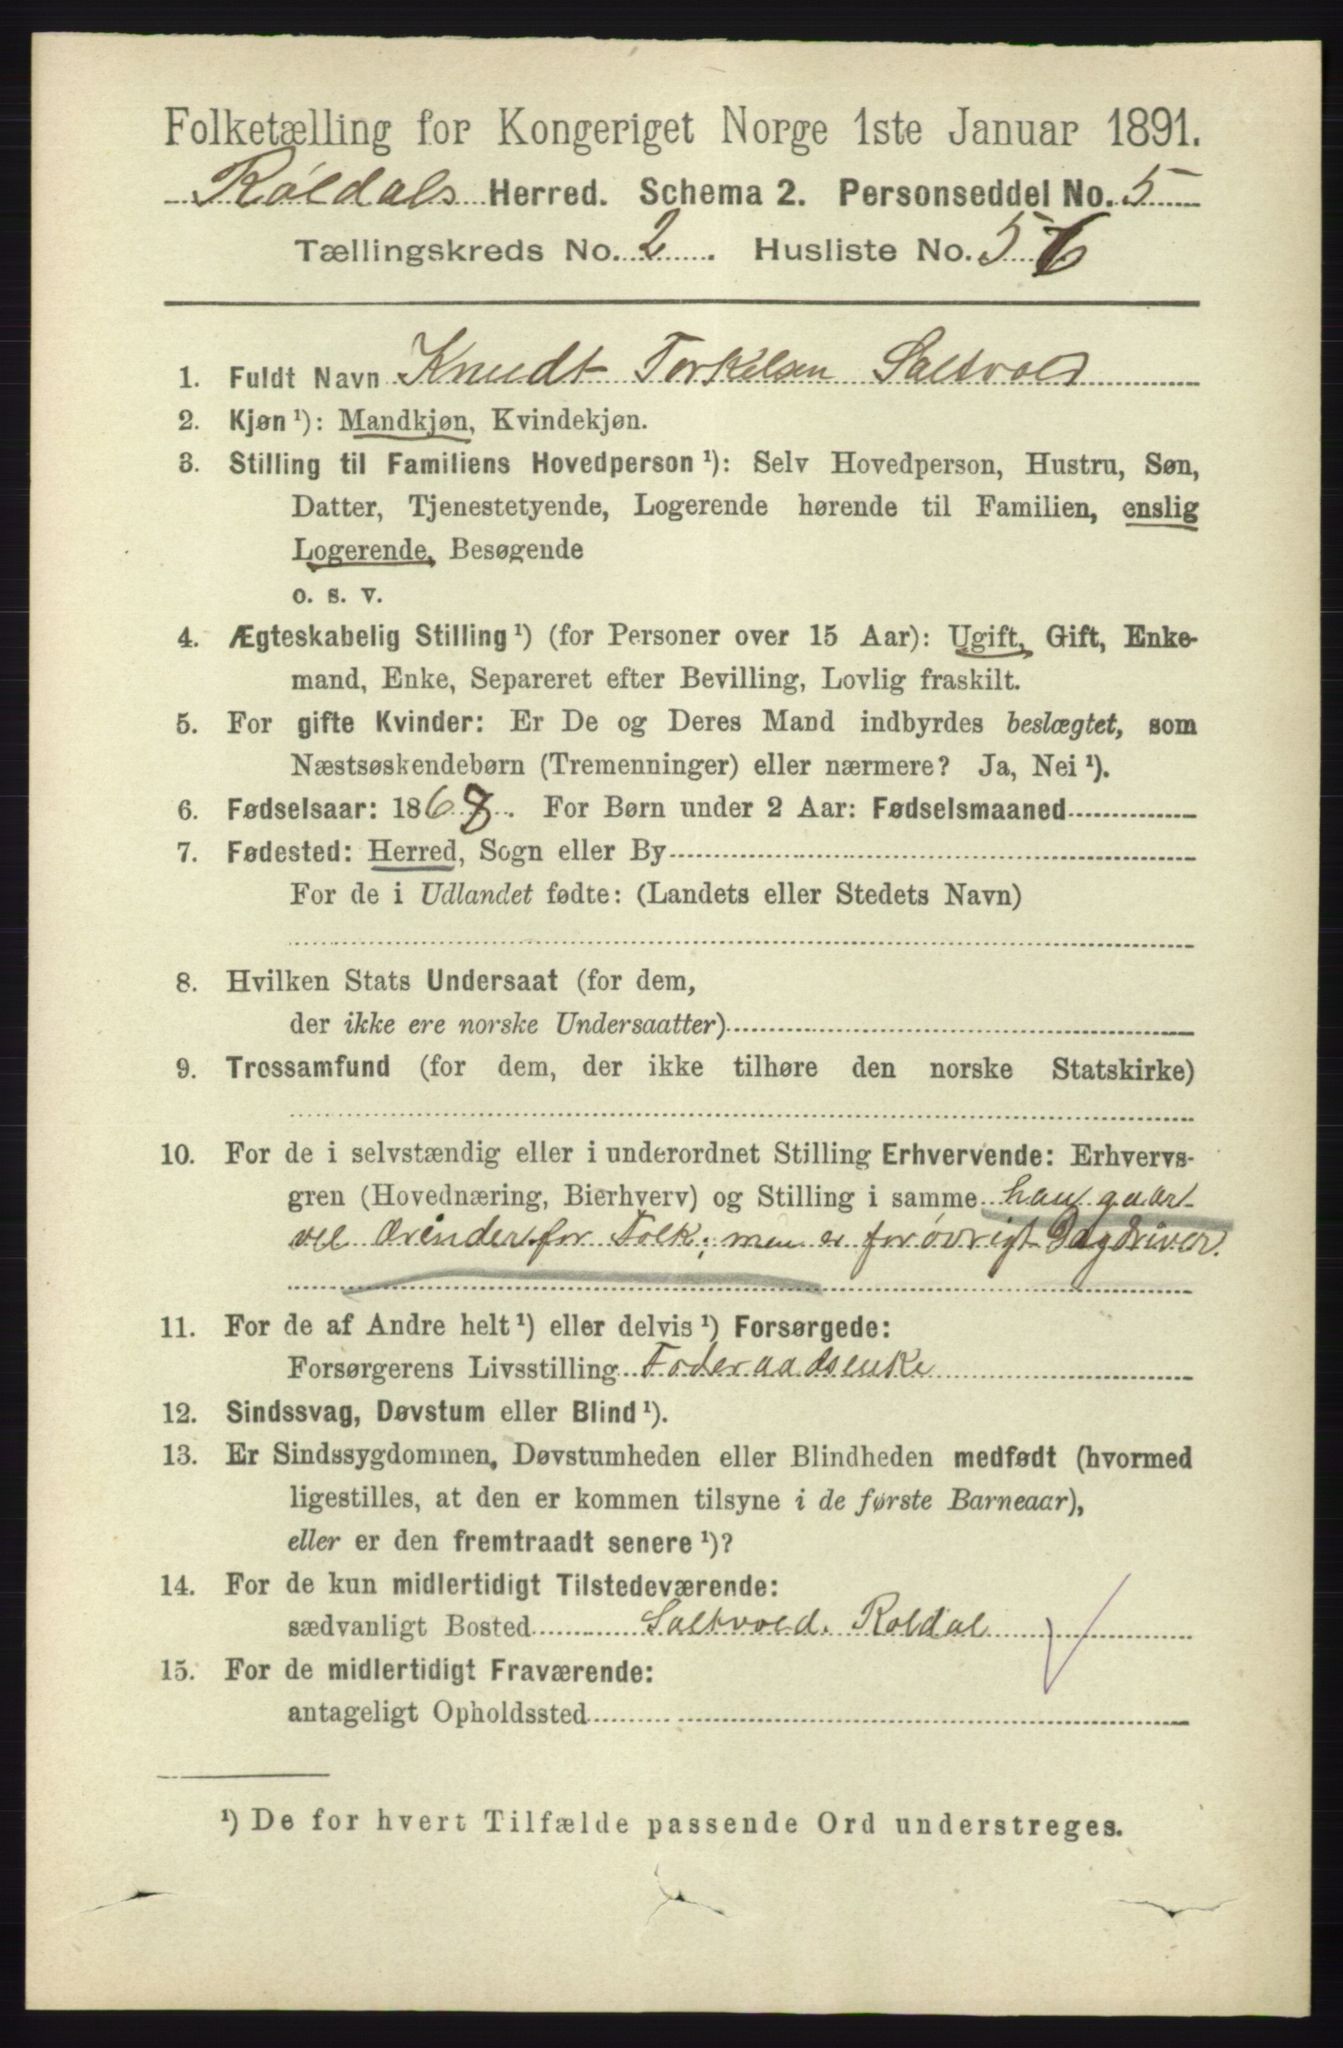 Folketælling for Kongeriget Norge 1ste Januar 1891.
Røldals Herred. Schema 2. Personseddel No. 5
Tællingskreds No. 2. Husliste No. 56
1. Fuldt Navn Knudt Torkelsen Saltvold
2. Kjøn ¹): Mandkjøn, Kvindekjøn.
3. Stilling til Familiens Hovedperson ¹): Selv Hovedperson, Hustru, Søn,
Datter, Tjenestetyende, Logerende hørende til Familien, enslig
Logerende, Besøgende
o. s. v.
4. Ægteskabelig Stilling ¹) (for Personer over 15 Aar): Ugift, Gift, Enke-
mand, Enke, Separeret efter Bevilling, Lovlig fraskilt.
5. For gifte Kvinder: Er De og Deres Mand indbyrdes beslægtet, som
Næstsøskendebørn (Tremenninger) eller nærmere? Ja, Nei ¹).
6. Fødselsaar: 1868. For Børn under 2 Aar: Fødselsmaaned
7. Fødested: Herred, Sogn eller By
For de i Udlandet fødte: (Landets eller Stedets Navn)
8. Hvilken Stats Undersaat (for dem,
der ikke ere norske Undersaatter)
9. Trossamfund (for dem, der ikke tilhøre den norske Statskirke)
10. For de i selvstændig eller i underordnet Stilling Erhvervende: Erhvervs-
gren (Hovednæring, Bierhverv) og Stilling i samme han gaar
vel Ærinder for Folk; men er forøvrigt Dagdriver.
11. For de af Andre helt ¹) eller delvis ¹) Forsørgede:
Forsørgerens Livsstilling Foderaadsenke
12. Sindssvag, Døvstum eller Blind ¹).
13. Er Sindssygdommen, Døvstumheden eller Blindheden medfødt (hvormed
ligestilles, at den er kommen tilsyne i de første Barneaar),
eller er den fremtraadt senere ¹)?
14. For de kun midlertidigt Tilstedeværende:
sædvanligt Bosted Saltvold. Roldal
15. For de midlertidigt Fraværende:
antageligt Opholdssted
¹) De for hvert Tilfælde passende Ord understreges.